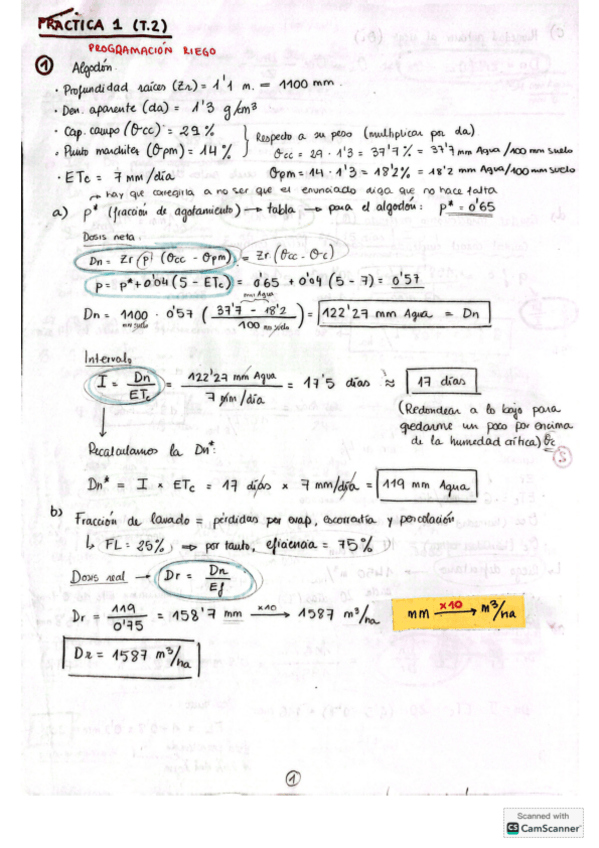 PRÁCTICA 1 (T.2)
PROGRAMACIÓN RIEGO
1 Algodón.
· Profundidad raíces (Zr) = 1'1 m. = 1100 mm.
· Den. aparente (da) = 1'3 g/cm³
· Cap. campo (θcc) = 29%
· Punto marchitez (θpm) = 14%
} Respecto a su peso (multiplicar por da)
θcc = 29 · 1'3 = 37'7% = 37'7 mm Agua/100 mm suelo
θpm = 14 · 1'3 = 18'2% = 18'2 mm Agua/100 mm suelo
· ETc = 7 mm/día
→ hay que corregirla a no ser que el enunciado diga que no hace falta
a) P* (fracción de agotamiento) → tabla → para el algodón: P* = 0'65
Dosis neta:
Dn = Zr (p) (θcc - θpm) = Zr (θcc - θc)
p = p* + 0'04 (5 - ETc) = 0'65 + 0'04 (5 - 7) = 0'57
Dn = 1100 mm suelo · 0'57 ( 37'7 - 18'2 mm Agua / 100 mm suelo ) = 122'27 mm Agua = Dn
Intervalo
I = Dn / ETc = 122'27 mm Agua / 7 mm/día = 17'5 días ≈ 17 días
(Redondear a lo bajo para
quedarme un poco por encima
de la humedad crítica) θc
Recalculamos la Dn*:
Dn* = I × ETc = 17 días × 7 mm/día = 119 mm Agua
b) Fracción de lavado = pérdidas por evap, escorrentía y percolación
↳ FL = 25% ⇒ por tanto, eficiencia = 75%
Dosis real → Dr = Dn / Ef
Dr = 119 / 0'75 = 158'7 mm ×10→ 1587 m³/ha
mm ×10→ m³/ha
Dr = 1587 m³/ha
1
Scanned with
CS CamScanner